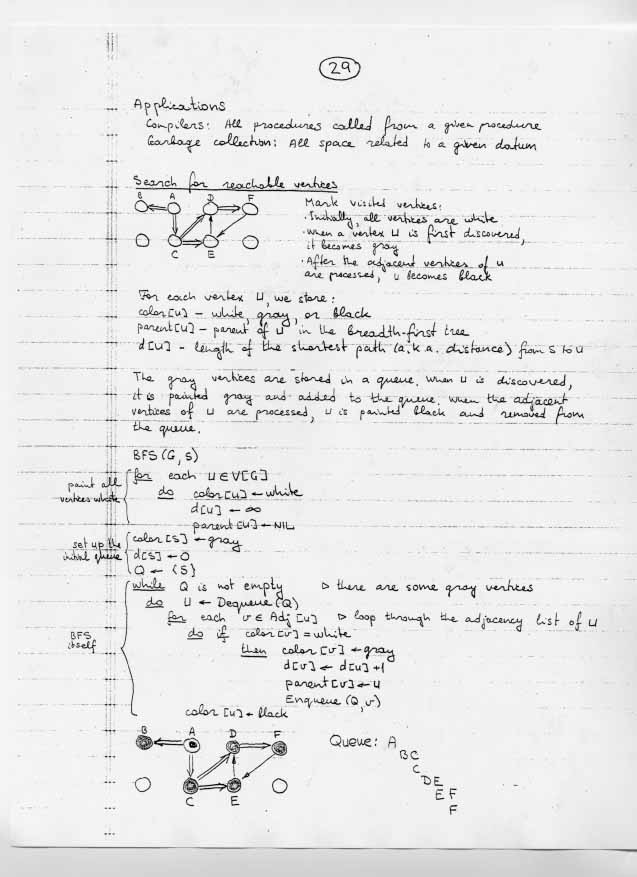 29
Applications
Compilers: All procedures called from a given procedure
Garbage collection: All space related to a given datum
Search for reachable vertices
B A D F
C E
Mark visited vertices:
· Initially, all vertices are white
· when a vertex u is first discovered,
it becomes gray
· After the adjacent vertices of u
are processed, u becomes black
For each vertex u, we store:
color[u] - white, gray, or black
parent[u] - parent of u in the breadth-first tree
d[u] - length of the shortest path (a.k.a. distance) from s to u
The gray vertices are stored in a queue. When u is discovered,
it is painted gray and added to the queue. When the adjacent
vertices of u are processed, u is painted black and removed from
the queue.
BFS(G, s)
paint all
vertices white
for each u ∈ V[G]
do color[u] ← white
d[u] ← ∞
parent[u] ← NIL
set up the
initial queue
color[s] ← gray
d[s] ← 0
Q ← {s}
BFS
itself
while Q is not empty ▷ there are some gray vertices
do u ← Dequeue(Q)
for each v ∈ Adj[u] ▷ loop through the adjacency list of u
do if color[v] = white
then color[v] ← gray
d[v] ← d[u] + 1
parent[v] ← u
Enqueue(Q, v)
color[u] ← black
B A D F
C E
Queue: A
B C
C
D E
E F
F